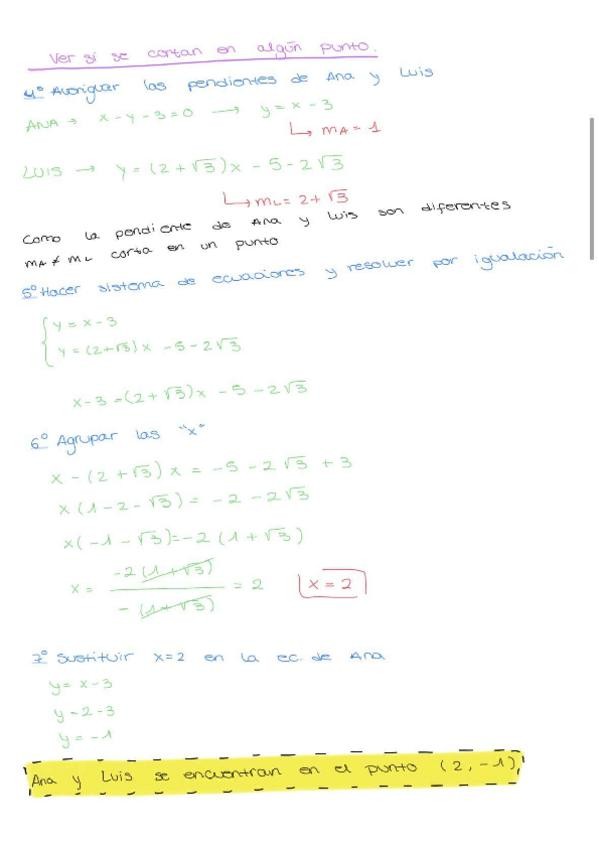 Ver si se cortan en algún punto.
4º Averiguar las pendientes de Ana y Luis
ANA → x - y - 3 = 0 → y = x - 3
↳ mA = 1
LUIS → y = (2 + √3)x - 5 - 2√3
↳ mL = 2 + √3
Como la pendiente de Ana y Luis son diferentes
mA ≠ mL corta en un punto
5º Hacer sistema de ecuaciones y resolver por igualación
y = x - 3
y = (2+√3)x - 5 - 2√3
x - 3 = (2 + √3)x - 5 - 2√3
6º Agrupar las "x"
x - (2 + √3)x = -5 - 2√3 + 3
x(1 - 2 - √3) = -2 - 2√3
x(-1 - √3) = -2(1 + √3)
x = -2(1+√3) / -(1+√3) = 2 x = 2
7º Sustituir x=2 en la ec. de Ana
y = x - 3
y = 2 - 3
y = -1
Ana y Luis se encuentran en el punto (2, -1)